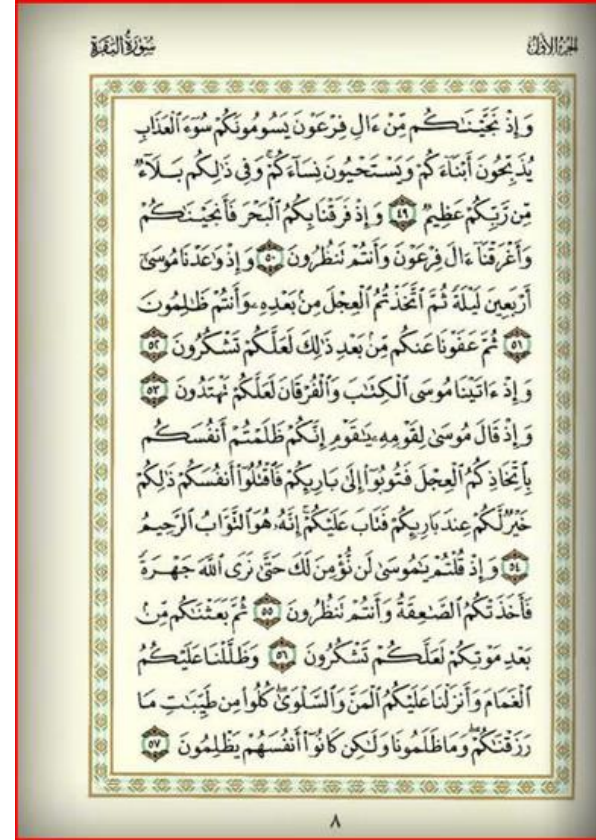 سُورَةُ البَقَرَةِ
الجُزْءُ الأَوَّلُ
وَإِذْ نَجَّيْنَٰكُم مِّنْ ءَالِ فِرْعَوْنَ يَسُومُونَكُمْ سُوٓءَ ٱلْعَذَابِ
يُذَبِّحُونَ أَبْنَآءَكُمْ وَيَسْتَحْيُونَ نِسَآءَكُمْ ۚ وَفِى ذَٰلِكُم بَلَآءٌ
مِّن رَّبِّكُمْ عَظِيمٌ ٤٩ وَإِذْ فَرَقْنَا بِكُمُ ٱلْبَحْرَ فَأَنجَيْنَٰكُمْ
وَأَغْرَقْنَآ ءَالَ فِرْعَوْنَ وَأَنتُمْ تَنظُرُونَ ٥٠ وَإِذْ وَٰعَدْنَا مُوسَىٰٓ
أَرْبَعِينَ لَيْلَةً ثُمَّ ٱتَّخَذْتُمُ ٱلْعِجْلَ مِنۢ بَعْدِهِۦ وَأَنتُمْ ظَٰلِمُونَ
٥١ ثُمَّ عَفَوْنَا عَنكُم مِّنۢ بَعْدِ ذَٰلِكَ لَعَلَّكُمْ تَشْكُرُونَ ٥٢
وَإِذْ ءَاتَيْنَا مُوسَى ٱلْكِتَٰبَ وَٱلْفُرْقَانَ لَعَلَّكُمْ تَهْتَدُونَ ٥٣
وَإِذْ قَالَ مُوسَىٰ لِقَوْمِهِۦ يَٰقَوْمِ إِنَّكُمْ ظَلَمْتُمْ أَنفُسَكُم
بِٱتِّخَاذِكُمُ ٱلْعِجْلَ فَتُوبُوٓا۟ إِلَىٰ بَارِئِكُمْ فَٱقْتُلُوٓا۟ أَنفُسَكُمْ ذَٰلِكُمْ
خَيْرٌ لَّكُمْ عِندَ بَارِئِكُمْ فَتَابَ عَلَيْكُمْ ۚ إِنَّهُۥ هُوَ ٱلتَّوَّابُ ٱلرَّحِيمُ
٥٤ وَإِذْ قُلْتُمْ يَٰمُوسَىٰ لَن نُّؤْمِنَ لَكَ حَتَّىٰ نَرَى ٱللَّهَ جَهْرَةً
فَأَخَذَتْكُمُ ٱلصَّٰعِقَةُ وَأَنتُمْ تَنظُرُونَ ٥٥ ثُمَّ بَعَثْنَٰكُم مِّنۢ
بَعْدِ مَوْتِكُمْ لَعَلَّكُمْ تَشْكُرُونَ ٥٦ وَظَلَّلْنَا عَلَيْكُمُ
ٱلْغَمَامَ وَأَنزَلْنَا عَلَيْكُمُ ٱلْمَنَّ وَٱلسَّلْوَىٰ ۖ كُلُوا۟ مِن طَيِّبَٰتِ مَا
رَزَقْنَٰكُمْ ۖ وَمَا ظَلَمُونَا وَلَٰكِن كَانُوٓا۟ أَنفُسَهُمْ يَظْلِمُونَ ٥٧
٨